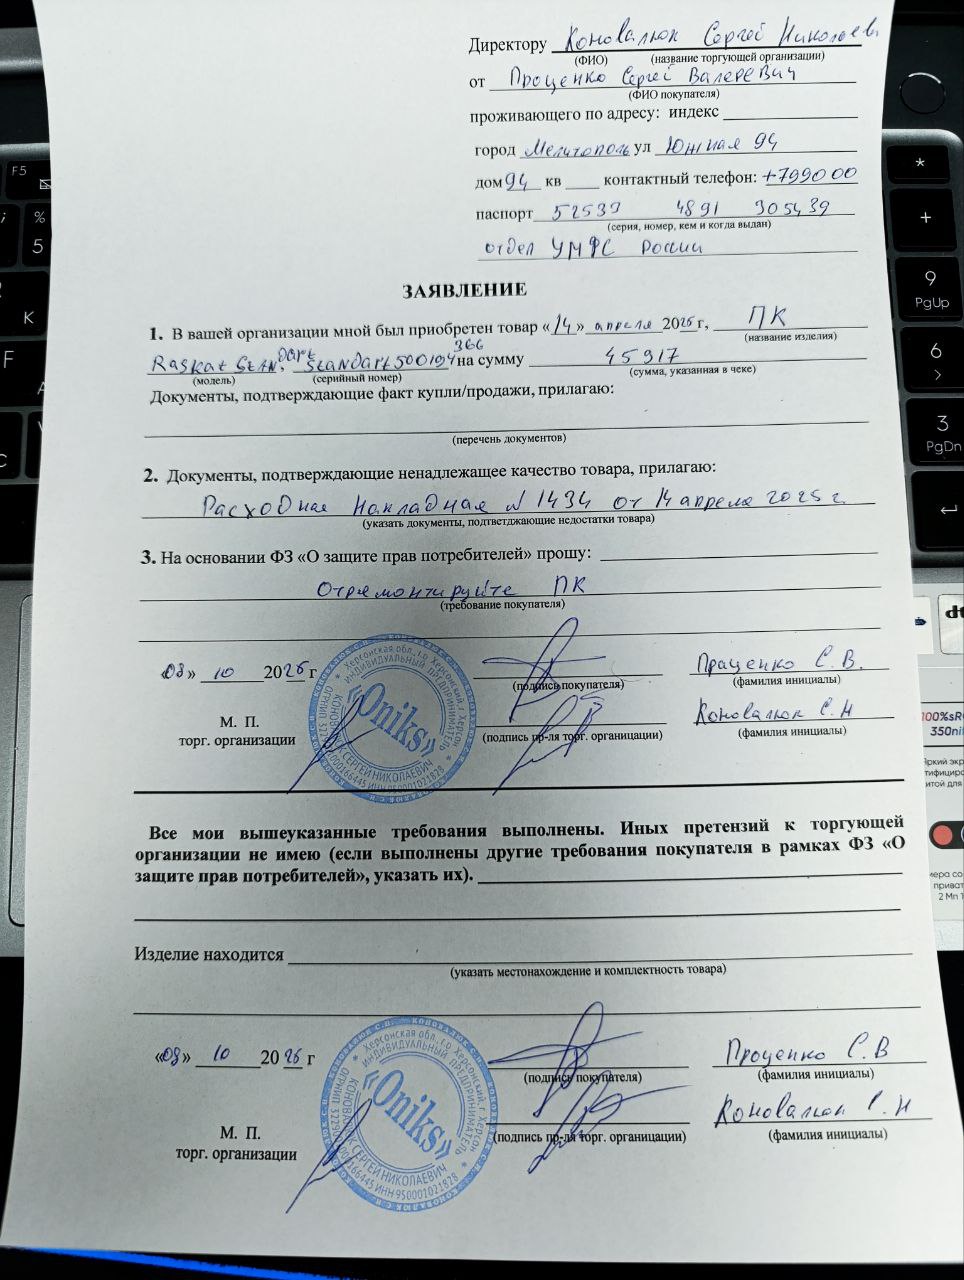 Директору Коновалюк Сергей Николаеви
(ФИО) (название торгующей организации)
от Проценко Сергей Валеревич
(ФИО покупателя)
проживающего по адресу: индекс
город Мелитополь ул Южная 94
дом 94 кв контактный телефон: +799000
паспорт 52539 4891 305439
(серия, номер, кем и когда выдан)
отдел УМФС России
ЗАЯВЛЕНИЕ
1. В вашей организации мной был приобретен товар «14» апреля 2025 г, ПК
(название изделия)
Raskat Standart, Standart500194366 на сумму 45917
(модель) (серийный номер) (сумма, указанная в чеке)
Документы, подтверждающие факт купли/продажи, прилагаю:
(перечень документов)
2. Документы, подтверждающие ненадлежащее качество товара, прилагаю:
Расходная накладная N 1434 от 14 апреля 2025 г.
(указать документы, подтветджающие недостатки товара)
3. На основании ФЗ «О защите прав потребителей» прошу:
Отремонтируйте ПК
(требование покупателя)
«08» 10 2025 г Праценко С.В.
(подпись покупателя) (фамилия инициалы)
М. П. Коновалюк С.Н
торг. организации (подпись пр-ля торг. органицации) (фамилия инициалы)
Херсонская обл., г.о. Херсонский, г. Херсон
ИНДИВИДУАЛЬНЫЙ ПРЕДПРИНИМАТЕЛЬ
«Oniks»
КОНОВАЛЮК СЕРГЕЙ НИКОЛАЕВИЧ
ИНН 950001021828
Все мои вышеуказанные требования выполнены. Иных претензий к торгующей
организации не имею (если выполнены другие требования покупателя в рамках ФЗ «О
защите прав потребителей», указать их).
Изделие находится
(указать местонахождение и комплектность товара)
«08» 10 2025 г Проценко С.В
(подпись покупателя) (фамилия инициалы)
Коновалюк С.Н
М. П. (подпись пр-ля торг. органицации) (фамилия инициалы)
торг. организации
Херсонская обл., г.о. Херсонский, г. Херсон
ИНДИВИДУАЛЬНЫЙ ПРЕДПРИНИМАТЕЛЬ
«Oniks»
КОНОВАЛЮК СЕРГЕЙ НИКОЛАЕВИЧ
ИНН 950001021828
F5
%
5
K
F
*
+
9
PgUp
6
3
PgDn
100%sR
350ni
2 Мп